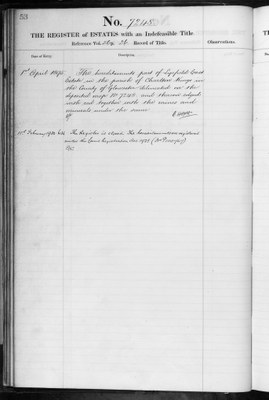 33
No. 7248
THE REGISTER of ESTATES with an Indefeasible Title
Reference Vol. Fo. 24. Record of Title.
Observations.
Date of Entry.
Description.
1st April 1875 The hereditaments part of Lynfield Court
Estate in the parish of Charlton Kings in
the County of Gloucester delineated on the
deposited map No. 7248 and thereon edged
with red together with the mines and
minerals under the same
11th February 1926 The Register is closed. The hereditaments are registered
under the Land Registration Act 1925